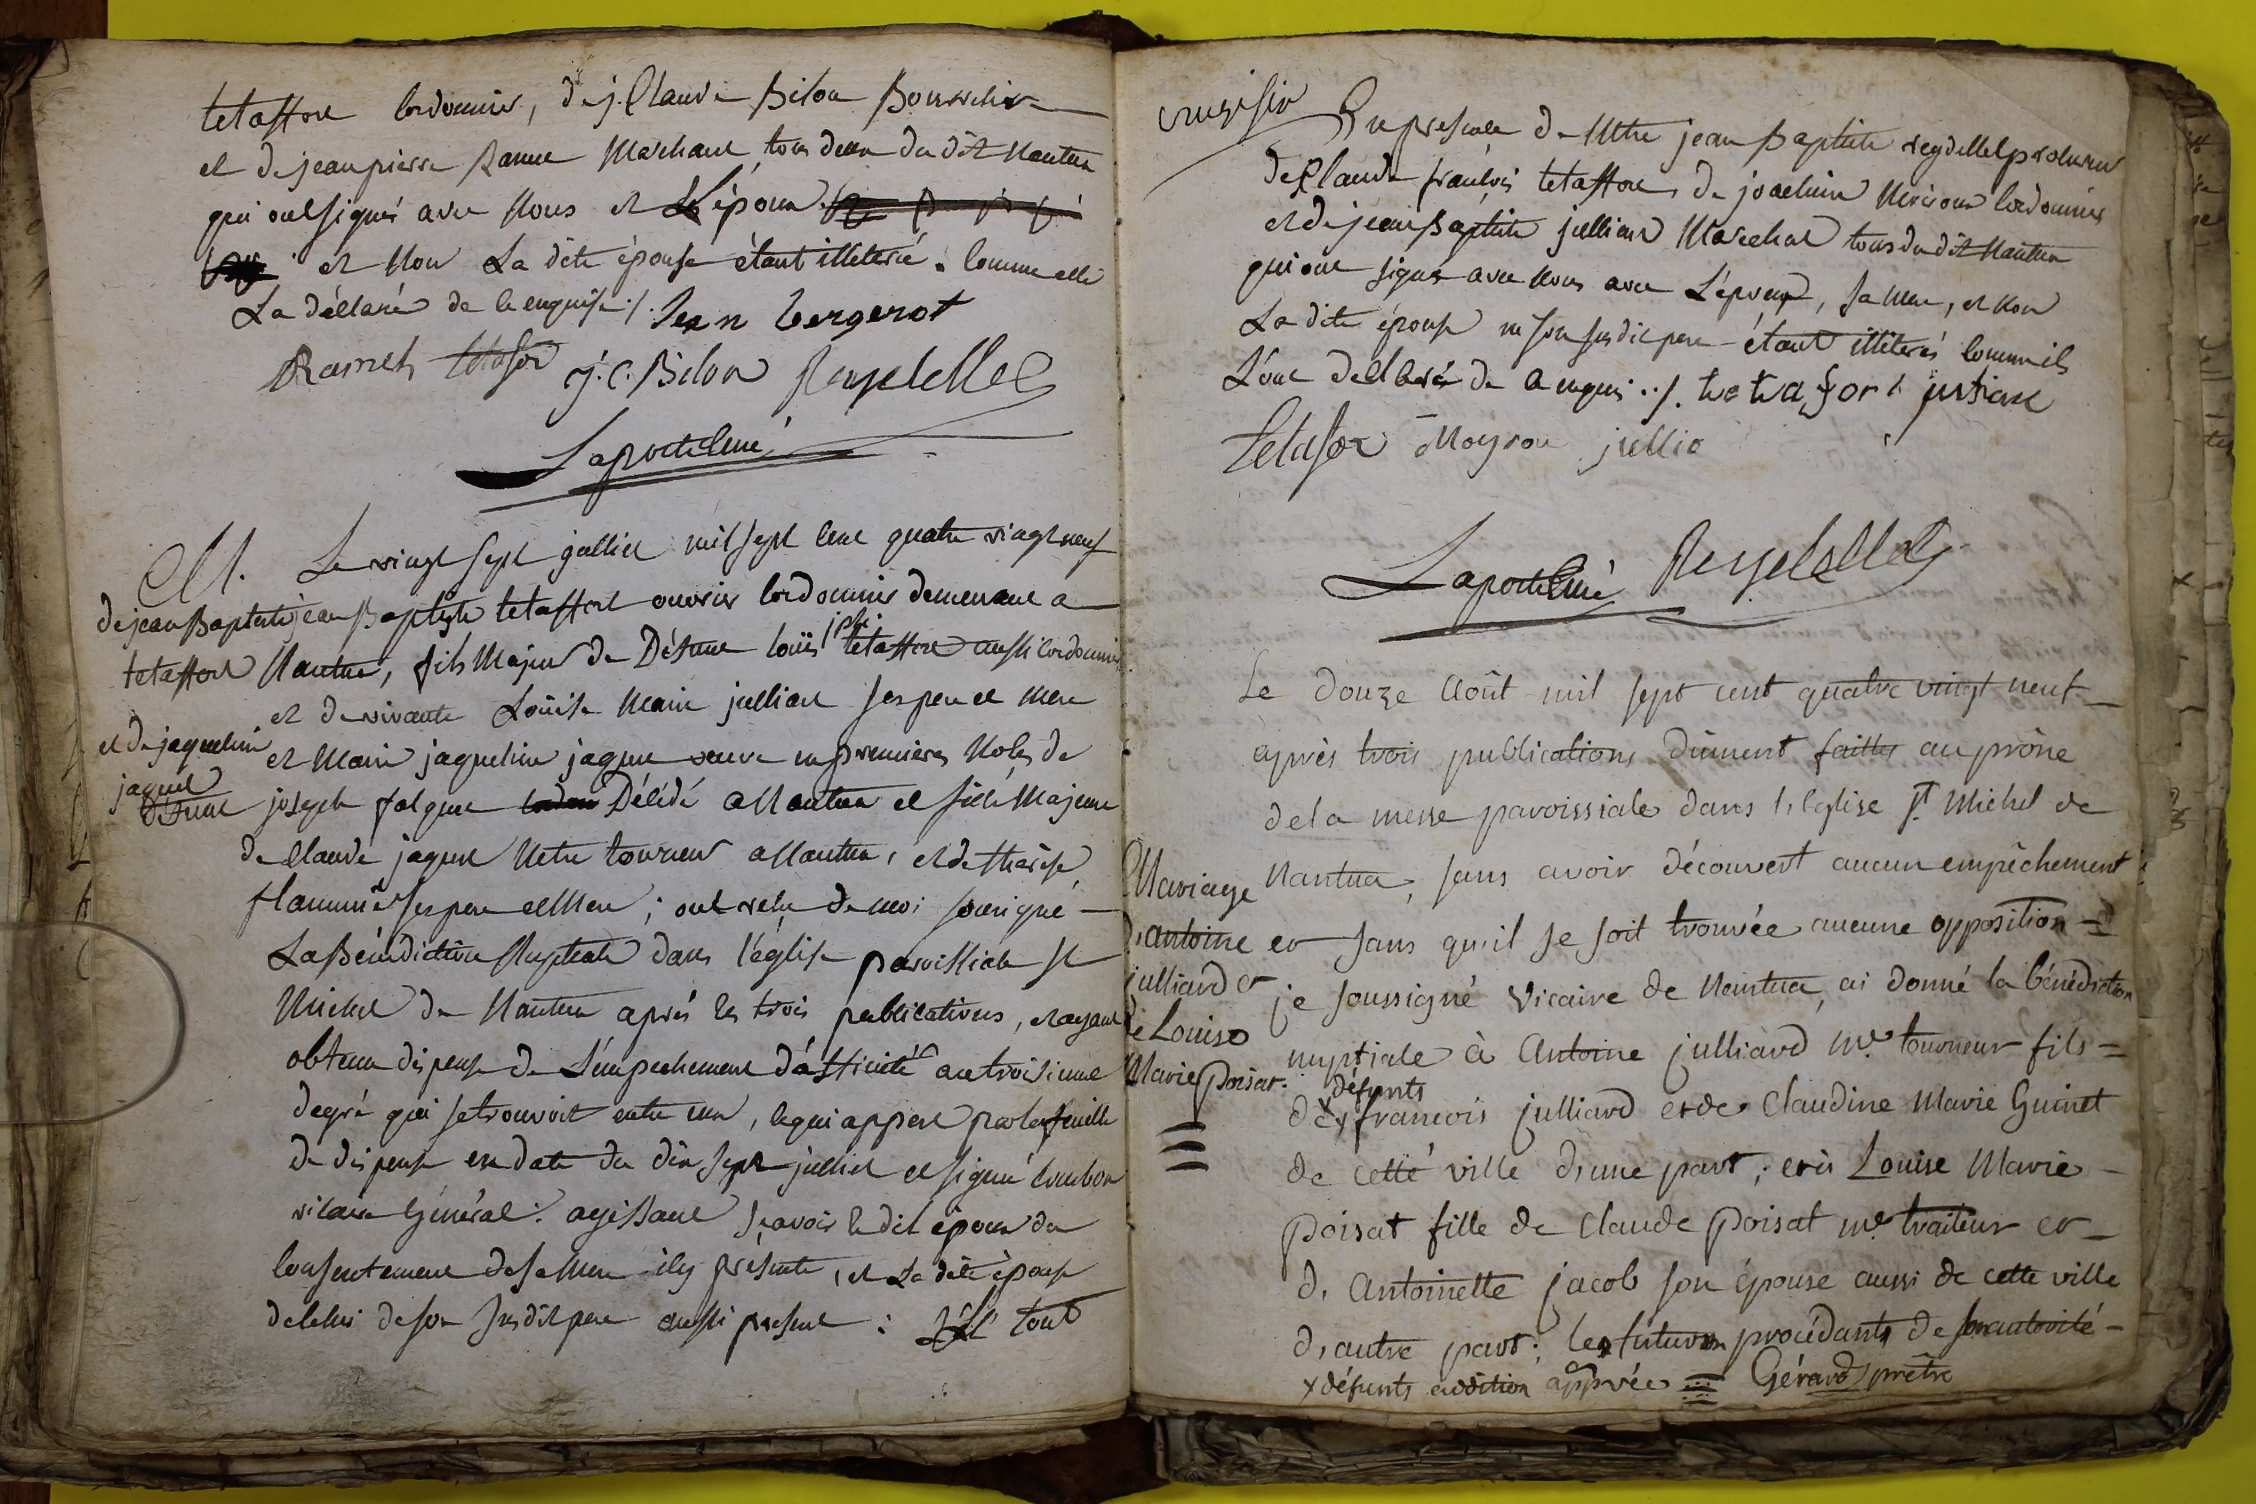 tetaffore Cordonnier, de j. Claude Bilon Bourrelier
et de jean pierre Ramel Marchand tous deux du dit Nantua
qui ont signés avec Nous et L'époux
et Non La dite épouse étant illeterée. Comme elle
La déclaré de ce enquise ./. Jean bergerot
Ramel tetafor j. C. Bilon Reydellet
Laporte Curé
M. Le vingt sept juilliet mil sept Cent quatre vingt neuf
de jean Baptiste jean Baptiste tetaffort ouvrier Cordonnier demeurant a
jph.
tetaffort Nantua, fils Majeur de Défunt Louis tetaffore aussi Cordonnier
et de vivante Louise Marie julliard ses pere et mere
et de jaqueline et Marie jaqueline jaquet veuve en premieres Noles de
jaquet joseph falque Délédé a Nantua et fille Majeure
défunt
de Claude jaquet Metre tourneur a Nantua, et de thérèse
flammié ses pere et Mere ; ont reçu de moi sousigné
La Bénédiction Nuptiale dans l'église paroissiale St
Michel de Nantua après les trois publications, et ayant
obtenu dispense de L'émpechement d'affinité au troisieme
degré qui se trouvoit entre eux, ce qui appert par la feuille
de dispense en date du dix sept julliet et signé Courbon
vicaire Général : agissant sçavoir le dit époux du
Consentement de sa Mere icy présente, et La dite épouse
de celui de son Susdit pere aussi présent : Le tout
vingt six En présence de Mtre jean Baptiste reydellet procureur
de Claude françois tetaffore, de joachim Meyron Cordonnier
et de jean Baptiste julliard Marechal tous du dit Nantua
qui ont signés avec Nous avec L'époux, sa Mere, et Non
La dite épouse ni son susdit pere étant illiterés Comme ils
L'ont déclarés de enquis ./. te ta for t
Tetafor Moyron jullia
Laporte Curé Reydellet
Le Douze Août mil sept cent quatre vingt neuf
après trois publications dûment faittes au prône
de la messe paroissiale dans l'Eglise St. Michel de
Mariage Nantua, sans avoir découvert aucun empêchement
d'antoine et sans qu'il se soit trouvée aucune opposition =
julliard et je soussigné Vicaire de Nantua, ai donné la bénédiction
de Louise nuptiale à Antoine julliard me. tourneur fils =
Marie Poisat. défunts
de x francois julliard et de Claudine Marie Guinet
de cette ville d'une part ; et à Louise Marie
Poisat fille de Claude Poisat me. traiteur et
d'Antoinette jacob son épouse aussi de cette ville
d'autre part ; les futurs procédants de son autorité
x défunts addition approuvée = Gérard prêtre